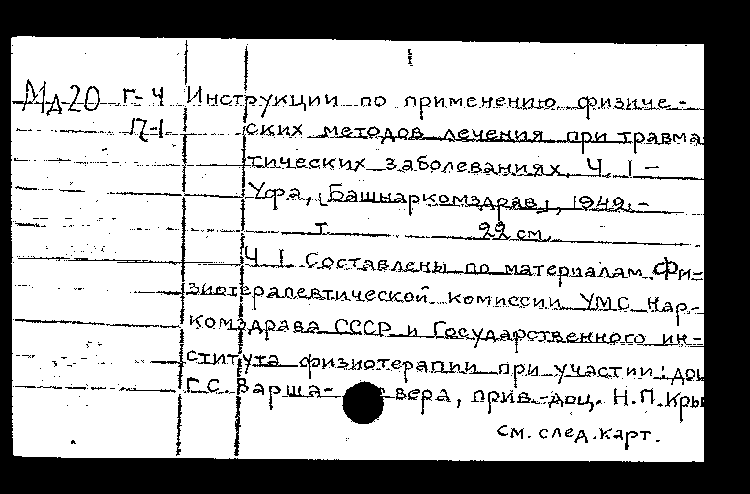 Мд-20 Г-4 Инструкции по применению физиче-
П-1 ских методов лечения при травма
тических заболеваниях. Ч. 1 –
Уфа, [Башнаркомздрав], 1942.–
т 22 см.
Ч 1. Составлены по материалам Фи-
зиотерапевтической комиссии УМС Нар-
комздрава СССР и Государственного ин-
ститута физиотерапии при участии: доц
Г.С. Варша- вера, прив.-доц. Н.П. Кры
см. след. карт.